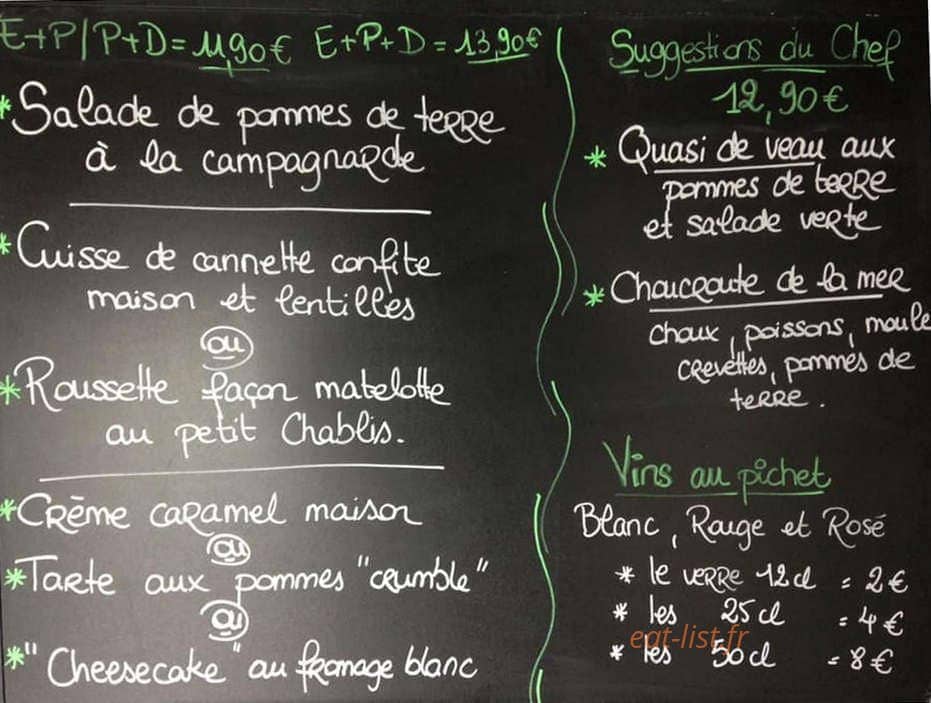 E+P/P+D = 11,90€ E+P+D = 13,90€
* Salade de pommes de terre
à la campagnarde
* Cuisse de cannette confite
maison et lentilles
ou
* Roussette façon matelotte
au petit Chablis.
* Crème caramel maison
ou
* Tarte aux pommes "crumble"
ou
* "Cheesecake" au fromage blanc
Suggestions du Chef
12,90€
* Quasi de veau aux
pommes de terre
et salade verte
* Choucroute de la mer
choux, poissons, moule
crevettes, pommes de
terre.
Vins au pichet
Blanc, Rouge et Rosé
* le verre 12cl = 2€
* les 25cl = 4€
eat-list.fr
* les 50cl = 8€